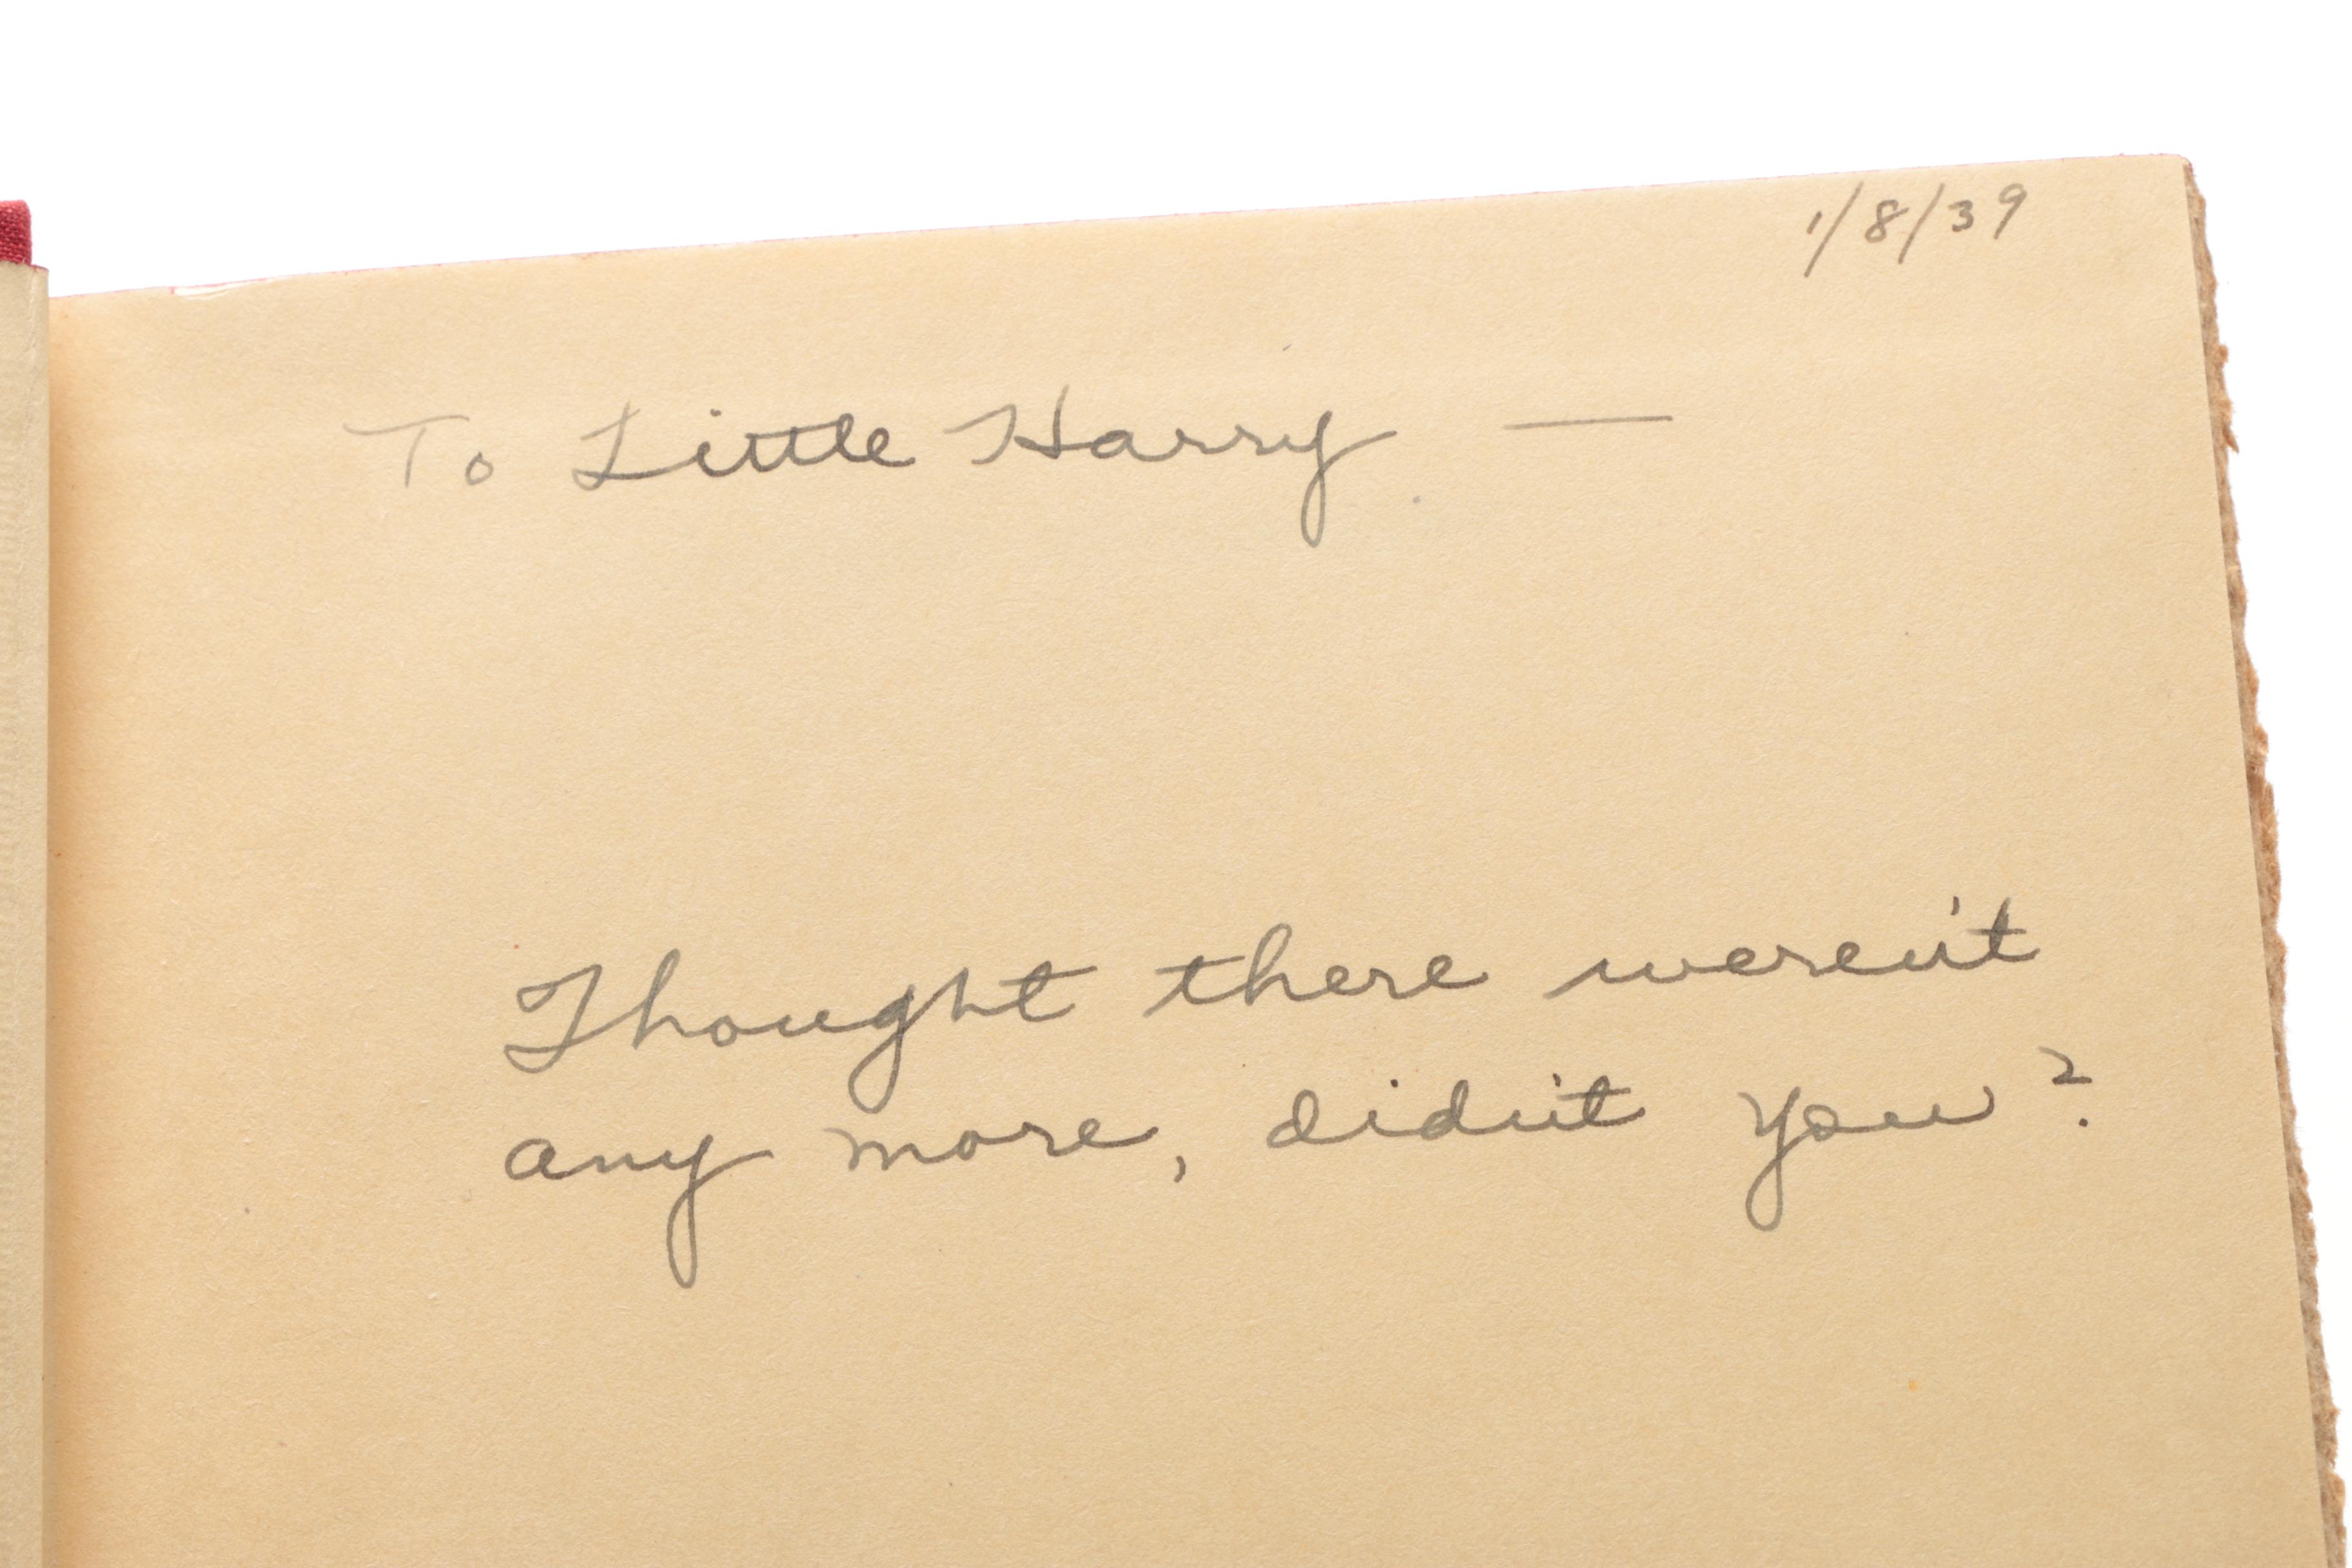 1/8/39
To Little Harry —
Thought there weren't
any more, didn't you?